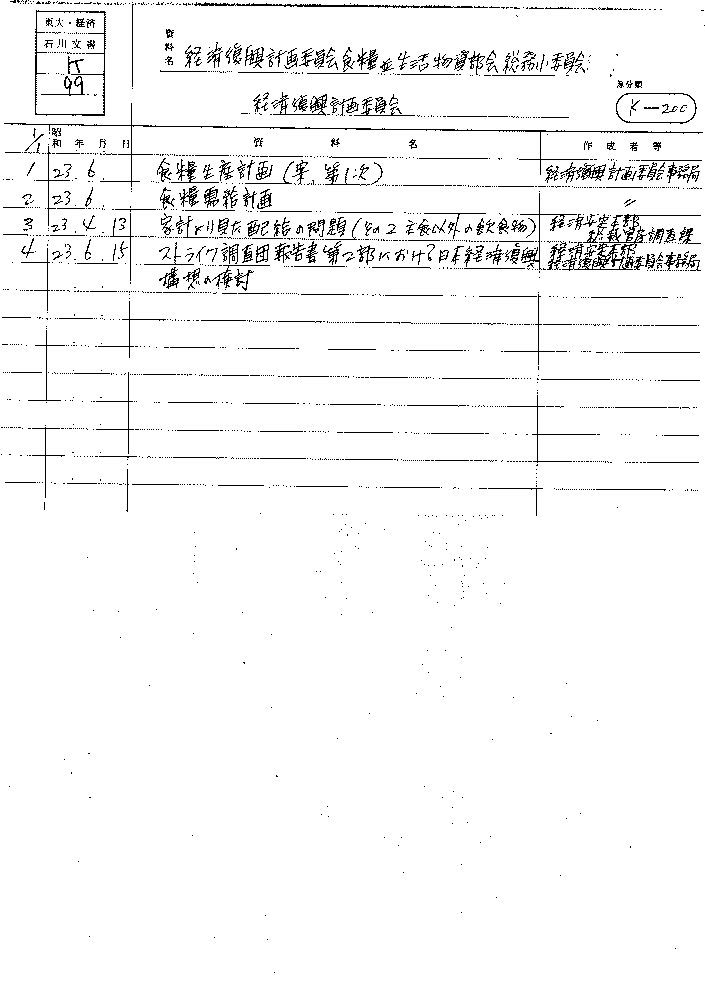 東大・経済
石川文書
K
99
資料名
経済復興計画委員会食糧並生活物資部会総務小委員会
経済復興計画委員会
原分類
K-200
1/1 昭和 年 月 日 資料名 作成者等
1 23. 6. 食糧生産計画(案、第1次) 経済復興計画委員会事務局
2 23 6. 食糧需給計画 〃
3 23. 4. 13 家計より見た配給の問題(その2 主食以外の飲食物) 経済安定本部
総裁官房調査課
4 23. 6. 15 ストライク調査団報告書第2部における日本経済復興 経済安定本部
経済復興計画委員会事務局
構想の検討